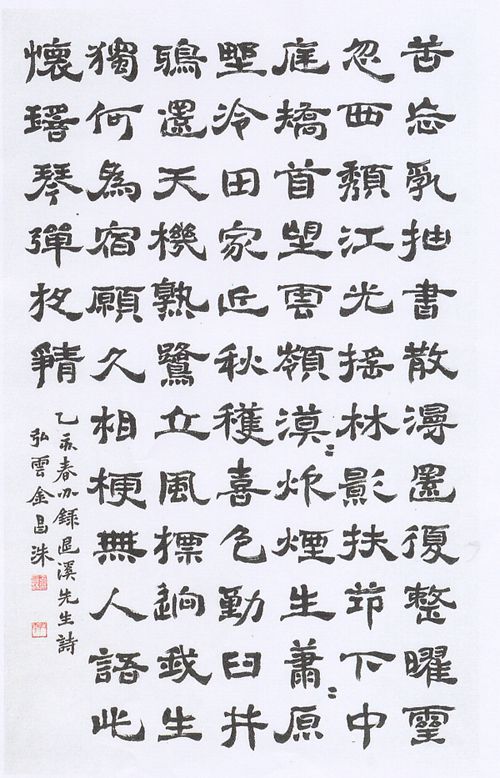 苦忘亂抽書散漫還復整曜靈
忽西頹江光搖林影扶筇下中
庭矯首望雲嶺漠〻炊煙生蕭〻原
野冷田家近秋穫喜色動臼井
鴉還天機熟鷺立風標逈我生
獨何為宿願久相梗無人語此
懷瑤琴彈夜靜
乙亥春錄退溪先生詩
弘雲金昌洙